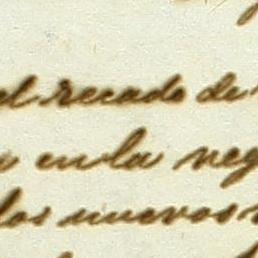 el recado de
en la neg
los nuevos